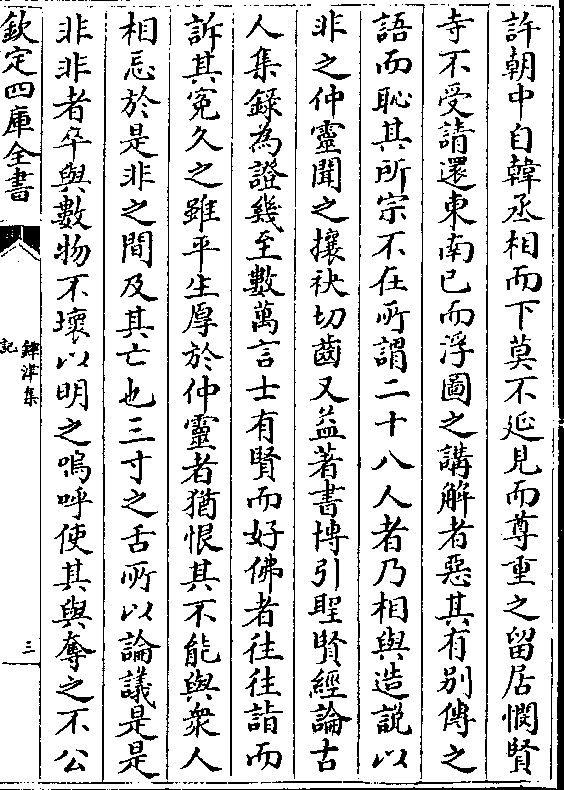 許朝中自韓丞相而下莫不延見而尊重之留居憫賢
寺不受請還東南已而浮圖之講解者惡其有別傳之
語而恥其所宗不在所謂二十八人者乃相與造說以
非之仲靈聞之攘袂切齒又益著書博引聖賢經論古
人集錄為證幾至數萬言士有賢而好佛者往往詣而
訴其寃久之雖平生厚於仲靈者猶恨其不能與衆人
相忘於是非之間及其亡也三寸之舌所以論議是是
非非者卒與數物不壞以明之嗚呼使其與奪之不公
欽定四庫全書
鐔津集
記
三